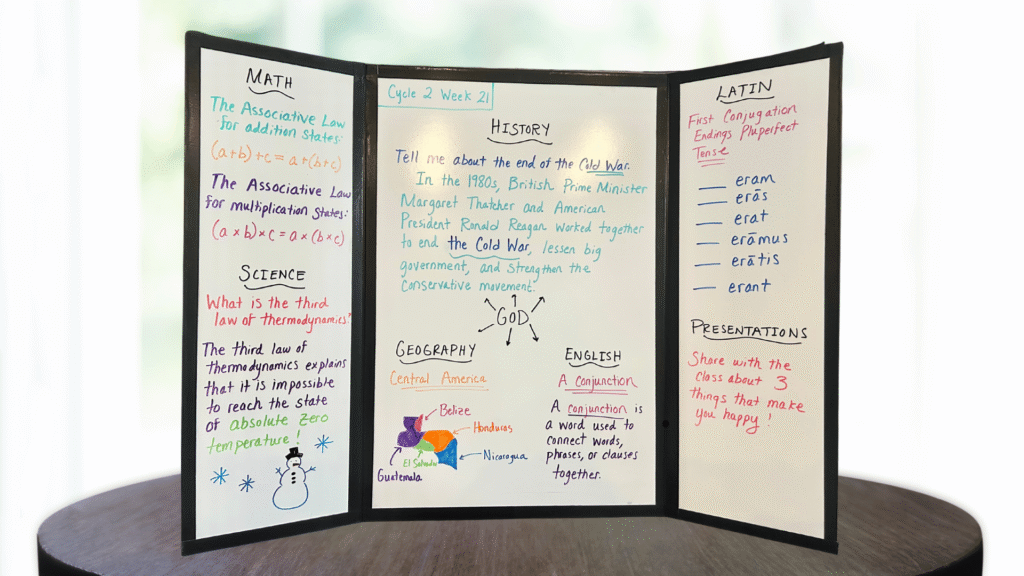 MATH
The Associative Law
for addition States:
(a+b)+c = a+(b+c)
The Associative Law
for multiplication States:
(a x b)x c = a x (b x c)
SCIENCE
What is the third
law of thermodynamics?
The third law of
thermodynamics explains
that it is impossible
to reach the state
of absolute zero
temperature!
Cycle 2 Week 21
HISTORY
Tell me about the end of the Cold War.
In the 1980s, British Prime Minister
Margaret Thatcher and American
President Ronald Reagan worked together
to end the Cold War, lessen big
government, and strengthen the
conservative movement.
GOD
GEOGRAPHY
Central America
Belize
Honduras
El Salvador
Nicaragua
Guatemala
ENGLISH
A conjunction
A conjunction is
a word used to
connect words,
phrases, or clauses
together.
LATIN
First Conjugation
Endings Pluperfect
Tense
___ eram
___ erās
___ erat
___ erāmus
___ erātis
___ erant
PRESENTATIONS
Share with the
class about 3
things that make
you happy!